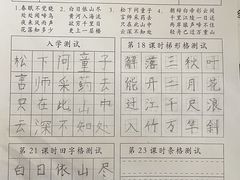 1.春眠不觉晓 2.白日依山尽 3.松下问童子 4.解落三秋叶
处处闻啼鸟 黄河入海流 言师采药去
夜来风雨声 欲穷千里目 只在此山中
花落知多少 更上一层楼 云深不知处
入学测试
松下问童子
言师采药去
只在此山中
云深不知处
第18课时梯形格测试
解落三秋叶
能开二月花
过江千尺浪
入竹万竿斜
第21课时田字格测试
白日依山尽
第23课时条格测试